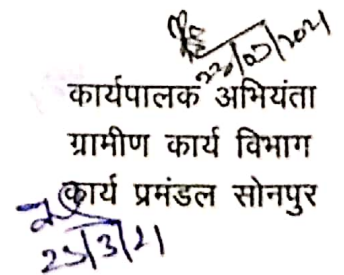 23/03/2021
कार्यपालक अभियंता
ग्रामीण कार्य विभाग
कार्य प्रमंडल सोनपुर
23/3/21